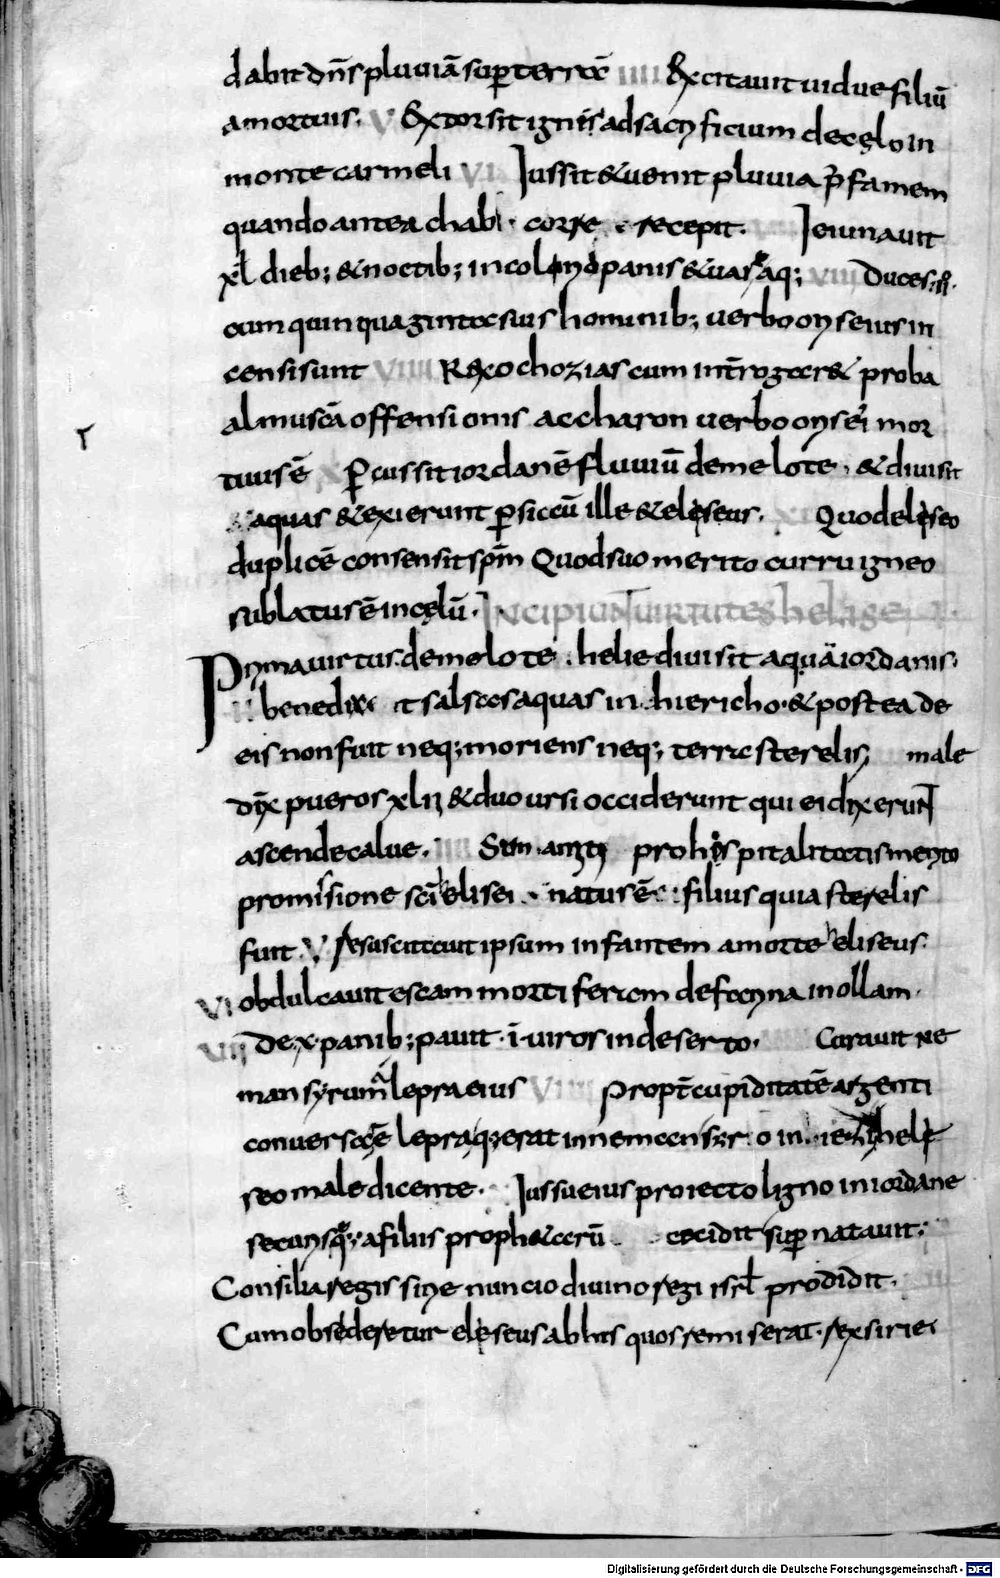 dabit dn̄s pluuiā sup̄ terrā IIII Excitauit uidue filiū
amortuis. V Extorsit ignis ad sacrificium de cęlo in
monte carmeli VI Iussit & uenit pluuia p̄ famem
quando antea chab currę recepit. Ieiunauit
xl dieb; & noctib; panis & uas aq; VIII Duces
cum quinquaginta suis hominib; uerbo eius in
censi sunt VIIII Rex ochozias cum int̄rogar& proba
al muscā offensionis accharon uerbo mor
tuus ē P̄cussit iordanē fluuiū de melote, & diuisit
aquas & exierunt p̄ siccū ille & elęseus. XI Quod elęseo
duplicē consensit sp̄m Quod suo merito curru igneo
sublatus ē in cęlū. Incipiunt uirtutes helisei
Prima uirtus. de melote. helie diuisit aquā iordanis.
II benedix it salsas aquas in hiericho. & postea de
eis non fuit neq; moriens neq; terra sterelis, male
dix pueros xlII & duo ursi occiderunt qui ei dixerunt
ascende calue. IIII pro hospitalitatis merito
promissione sc̄i helisei natus ē filius quia sterelis
fuit. V resuscitauit ipsum infantem amorte heliseus.
VI obdulcauit escam mortiferam de farina in ollam.
VII De x panib; pauit c uiros in deserto. Curauit ne
man syrum a lepra eius VIIII Propt̄ cupiditatē argenti
conuersa ē lepra q; erat in neman in helę
seo maledicente. Iussu eius proiecto ligno in iordane
securis q; a filiis proph&arū cecidit sup̄ natauit.
Consilia regis sirie nuncio diuino regi isrl prodidit.
Cum obsederetur elęseus ab his quos remiserat rex sirie
Digitalisierung gefördert durch die Deutsche Forschungsgemeinschaft - DFG